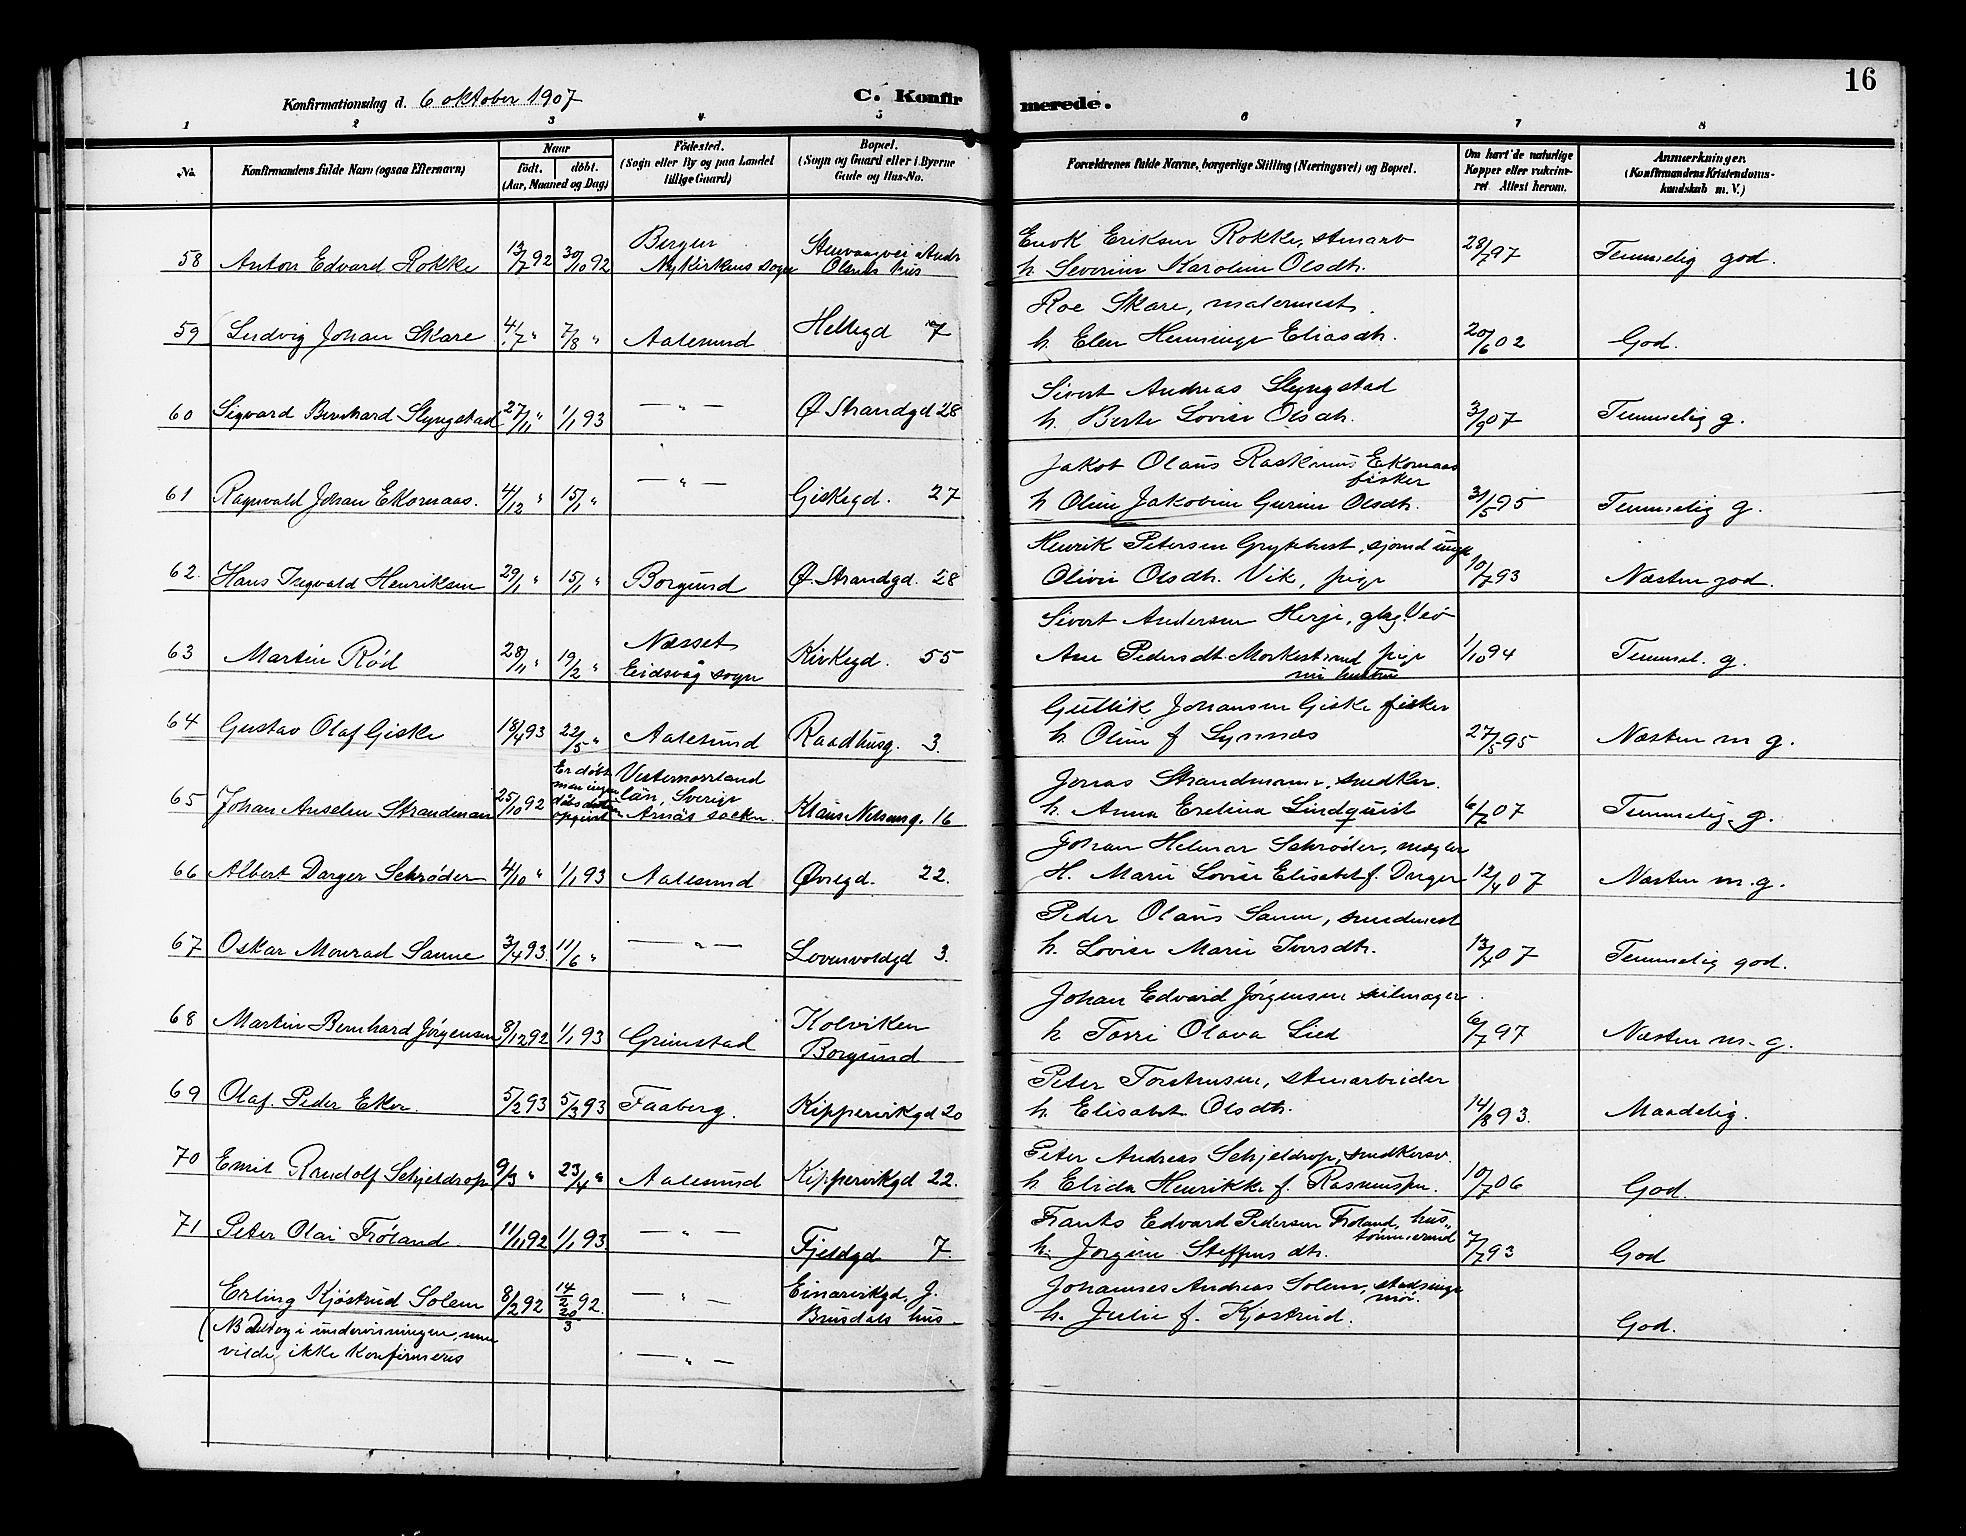 16
Konfirmationsdag d. 6 oktober 1907
C. Konfirmerede.
1 2 3 4 5 6 7 8
No. Konfirmandens fulde Navn (ogsaa Efternavn) Naar født. døbt. (Aar, Maaned og Dag) Fødested. (Sogn eller By og paa Landet tillige Gaard) Bopæl. (Sogn og Gaard eller i Byerne Gade og Hus-No. Forældrenes fulde Navne, borgerlige Stilling (Næringsvei) og Bopæl. Om havt de naturlige Kopper eller vaccineret Attest herom. Anmærkninger. (Konfirmandens Kristendomskundskab m. V.)
58 Anton Edvard Rokke 13/7 92 30/10 92 Bergen Nykirkens sogn Stenvaagvei Andr Olsens hus
Enok Eriksen Rokke, stenarb
h. Severine Karoline Olsdtr. 28/7 97 Temmelig god.
59 Ludvig Johan Skare 4/7 " 7/8 " Aalesund Hellegd 7
Roe Skare, malermest.
h. Elen Henninge Eliasdtr. 20/6 02 God.
60 Sigvard Bernhard Slyngstad 27/11 " 1/1 93 — " — Ø Strandgd 28
Sivert Andreas Slyngstad
h. Berte Lovise Olsdtr. 3/9 07 Temmelig g.
61 Ragnvald Johan Ekornaas. 4/12 " 15/1 " — " — Giskegd. 27
Jakob Olaus Rasmus Ekornaas fisker
h Oline Jakobine Gurine Olsdtr. 31/5 95 Temmelig g.
62. Hans Ingvald Henriksen 29/1 " 15/1 " Borgund Ø. Strandgd. 28
Henrik Petersen Grytehest, sjømd ungk
Olivie Olsdtr. Vik, pige 10/7 93 Næsten god.
63 Martin Rød 28/11 " 19/2 " Næsset Eidsvåg sogn Kirkegd. 55
Sivert Andersen Herje, Veø
Ane Pedersdt Morkestrand pige nu hustru 1/10 94 Temmel. g.
64 Gustav Olaf Giske 18/4 93 22/5 " Aalesund Raadhusg. 3.
Guttik Johansen Giske fisker
h. Oline f Synnæs 27/5 95 Næsten m g.
65 Johan Anselm Strandman 25/10 92 Er døbt men ingen dåbsdatum opgivet Vesternorrland län, Sverige Arnäs sockn. Klaus Nilsensg. 16
Jonas Strandmann, snedker.
h. Anna Evelina Lindquist 6/7 07 Temmelig g.
66 Albert Darger Schrøder 4/10 " 1/1 93 Aalesund Øvregd. 22.
Johan Helmar Schrøder, mægler
H. Marie Lovise Elisabet f. Darger 12/4 07 Næsten m. g.
67 Oskar Monrad Sanne 3/4 93. 11/6 " — " — Lovenvoldgd 3.
Peder Olaus Sanne, smedmest
h. Lovise Marie Iversdtr. 13/4 07 Temmelig god.
68 Martin Bernhard Jørgensen 8/12 92 1/1 93 Grimstad Kolviken Borgund
Johan Edvard Jørgensen seilmager
h Torri Olava Lied 6/7 97 Næsten m. g.
69 Olaf. Peder Eker. 5/2 93 5/3 93 Faaberg. Kippervikgd 20
Peter Torstensen, stenarbeider
h. Elisabet Olsdtr. 14/8 93. Maadelig.
70 Emil Rudolf Schjeldrop 9/3 " 23/4 " Aalesund Kippervikgd 22.
Peter Andreas Schjeldrop, snedkersv.
h Elida Henrikke f. Rasmussen. 10/7 06 God.
71 Peter Olai Frøland. 11/11 92 1/1 93. — " — Fjeldgd 7.
Frants Edvard Pedersen Frøland, hustømmermd
h. Jørgine Steffensdtr. 7/7 93 God
Erling Kjøstrud Solem 8/2 92 14/2 20/3 92. — " — Einarvikgd, J. Brusdals hus
Johannes Andreas Solem, stadsingeniør.
h. Julie f. Kjøstrud. God.
(NB Deltog i undervisningen, men
vilde ikke konfirmeres — " —